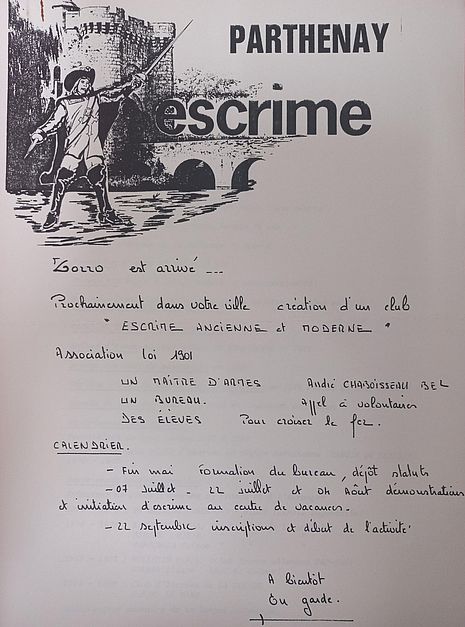 PARTHENAY
escrime
Zorro est arrivé ...
Prochainement dans votre ville création d'un club
" ESCRIME ANCIENNE et MODERNE "
Association loi 1901
UN MAÎTRE D'ARMES André CHABOISSEAU BEL
UN BUREAU. Appel à volontaires
DES ÉLÈVES Pour croiser le fer.
CALENDRIER.
- Fin mai formation du bureau, dépôt statuts
- 07 Juillet - 22 juillet et 04 Août démonstrations
et initiation d'escrime au centre de vacances.
- 22 septembre inscriptions et début de l'activité
A bientôt
En garde.